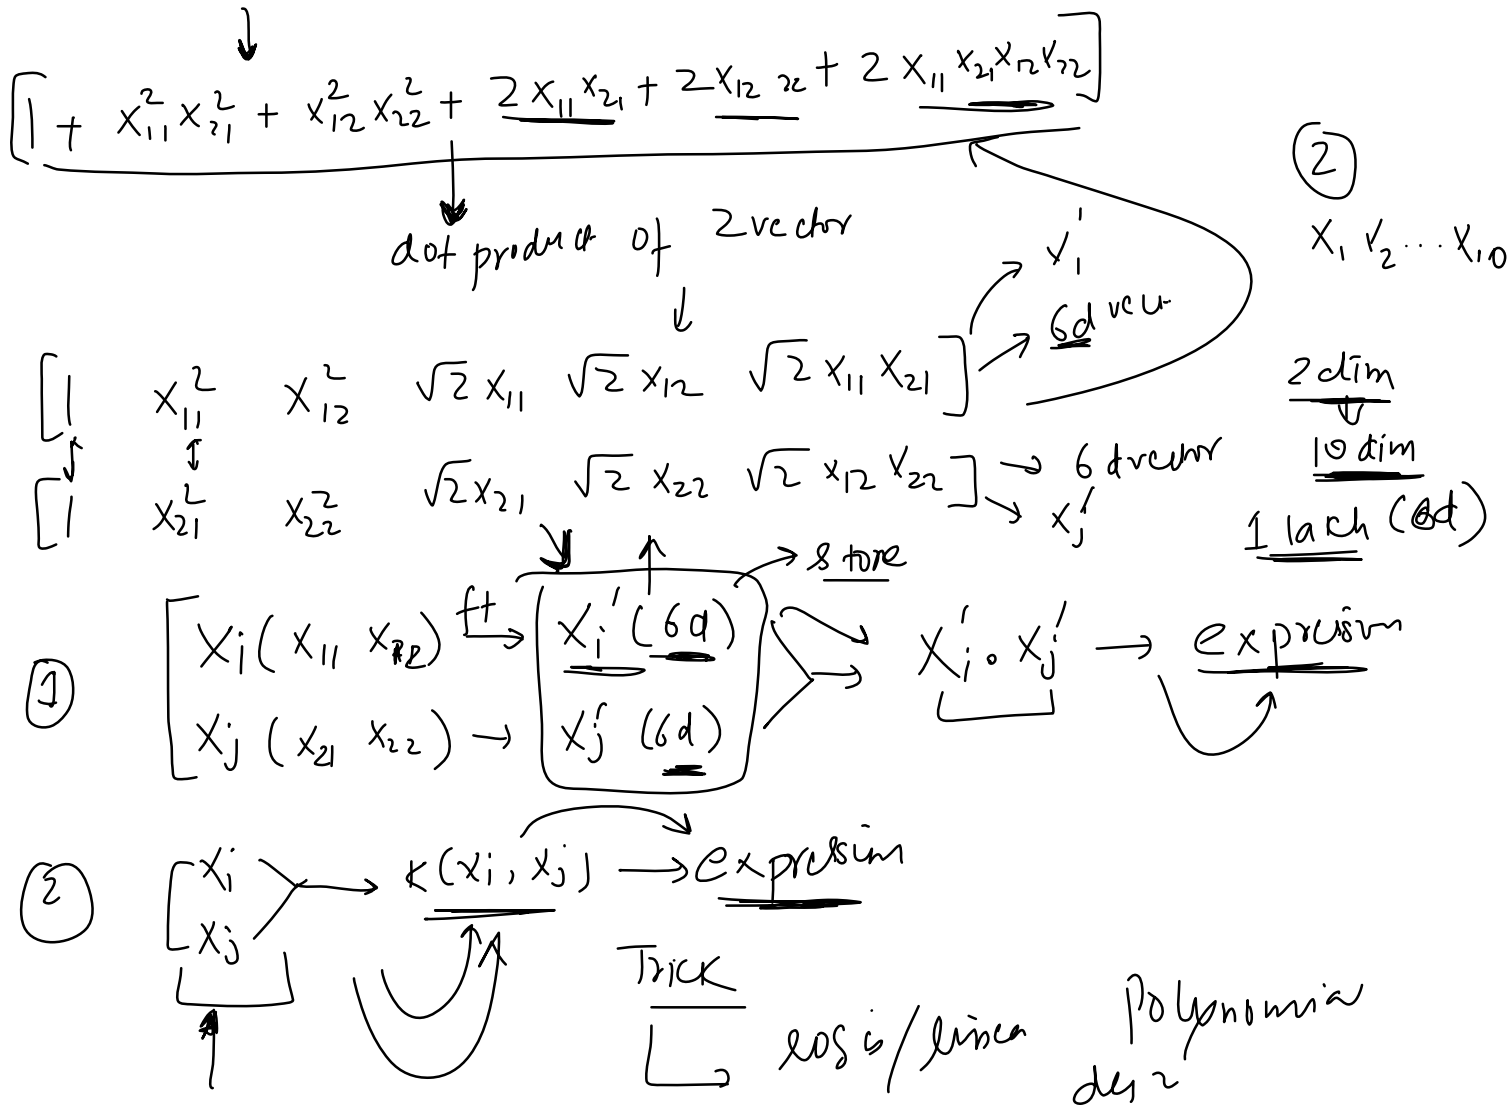 [1 + x₁₁² x₂₁² + x₁₂² x₂₂² + 2x₁₁x₂₁ + 2x₁₂ ₂₂ + 2x₁₁x₂₁x₁₂x₂₂]
②
x₁ x₂ ... x₁₀
dot product of 2 vector
x₁'
6d
[1 x₁₁² x₁₂² √2x₁₁ √2x₁₂ √2x₁₁x₂₁]
2 dim
[1 x₂₁² x₂₂² √2x₂₁ √2x₂₂ √2x₁₂x₂₂] → 6 dvector
xj'
10 dim
1 lakh (6d)
store
① Xi(x₁₁ x₁₂) ft → Xi' (6d)
Xj (x₂₁ x₂₂) → Xj' (6d)
Xi' . Xj' → expression
② Xi
Xj
K(xi, xj) → expression
Trick
logis/linea
Polynomia
deg 2